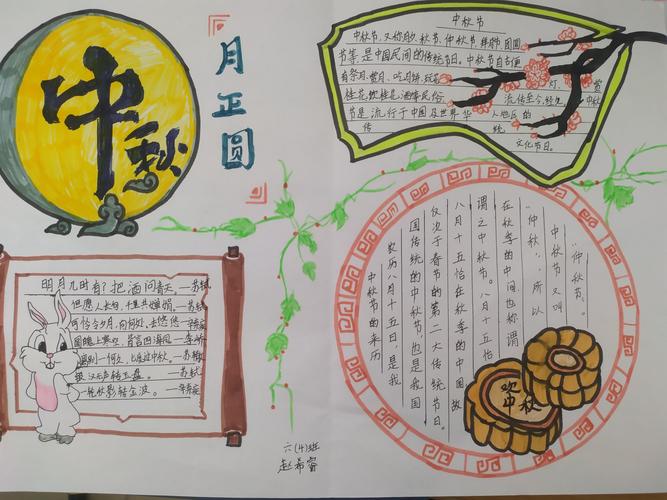 中秋
月正圆
中秋节
中秋节,又称月夕,秋节,仲秋节,拜月节,团圆
节等,是中国民间的传统节日。中秋节自古便
有祭月,赏月,吃月饼,玩花灯,赏
桂花,饮桂花酒等民俗,流传至今,经久
节是流行于中国及世界华人地区的
传统
文化节日。
明月几时有?把酒问青天。—苏轼
但愿人长久,千里共婵娟。—苏轼
何处去悠悠
此夜中秋。
银汉无声转玉盘。—苏轼
一轮秋影转金波。—辛弃疾
“仲秋节。”
中秋节又叫
“仲秋”,所以
在秋季的中间也称谓
谓之中秋节。八月十五恰
八月十五恰在秋季的中国,故
仅次于春节的第二大传统节日。
国传统的中秋节,也是我国
农历八月十五日,是我
中秋节的来历
中秋
六(4)班
赵希睿